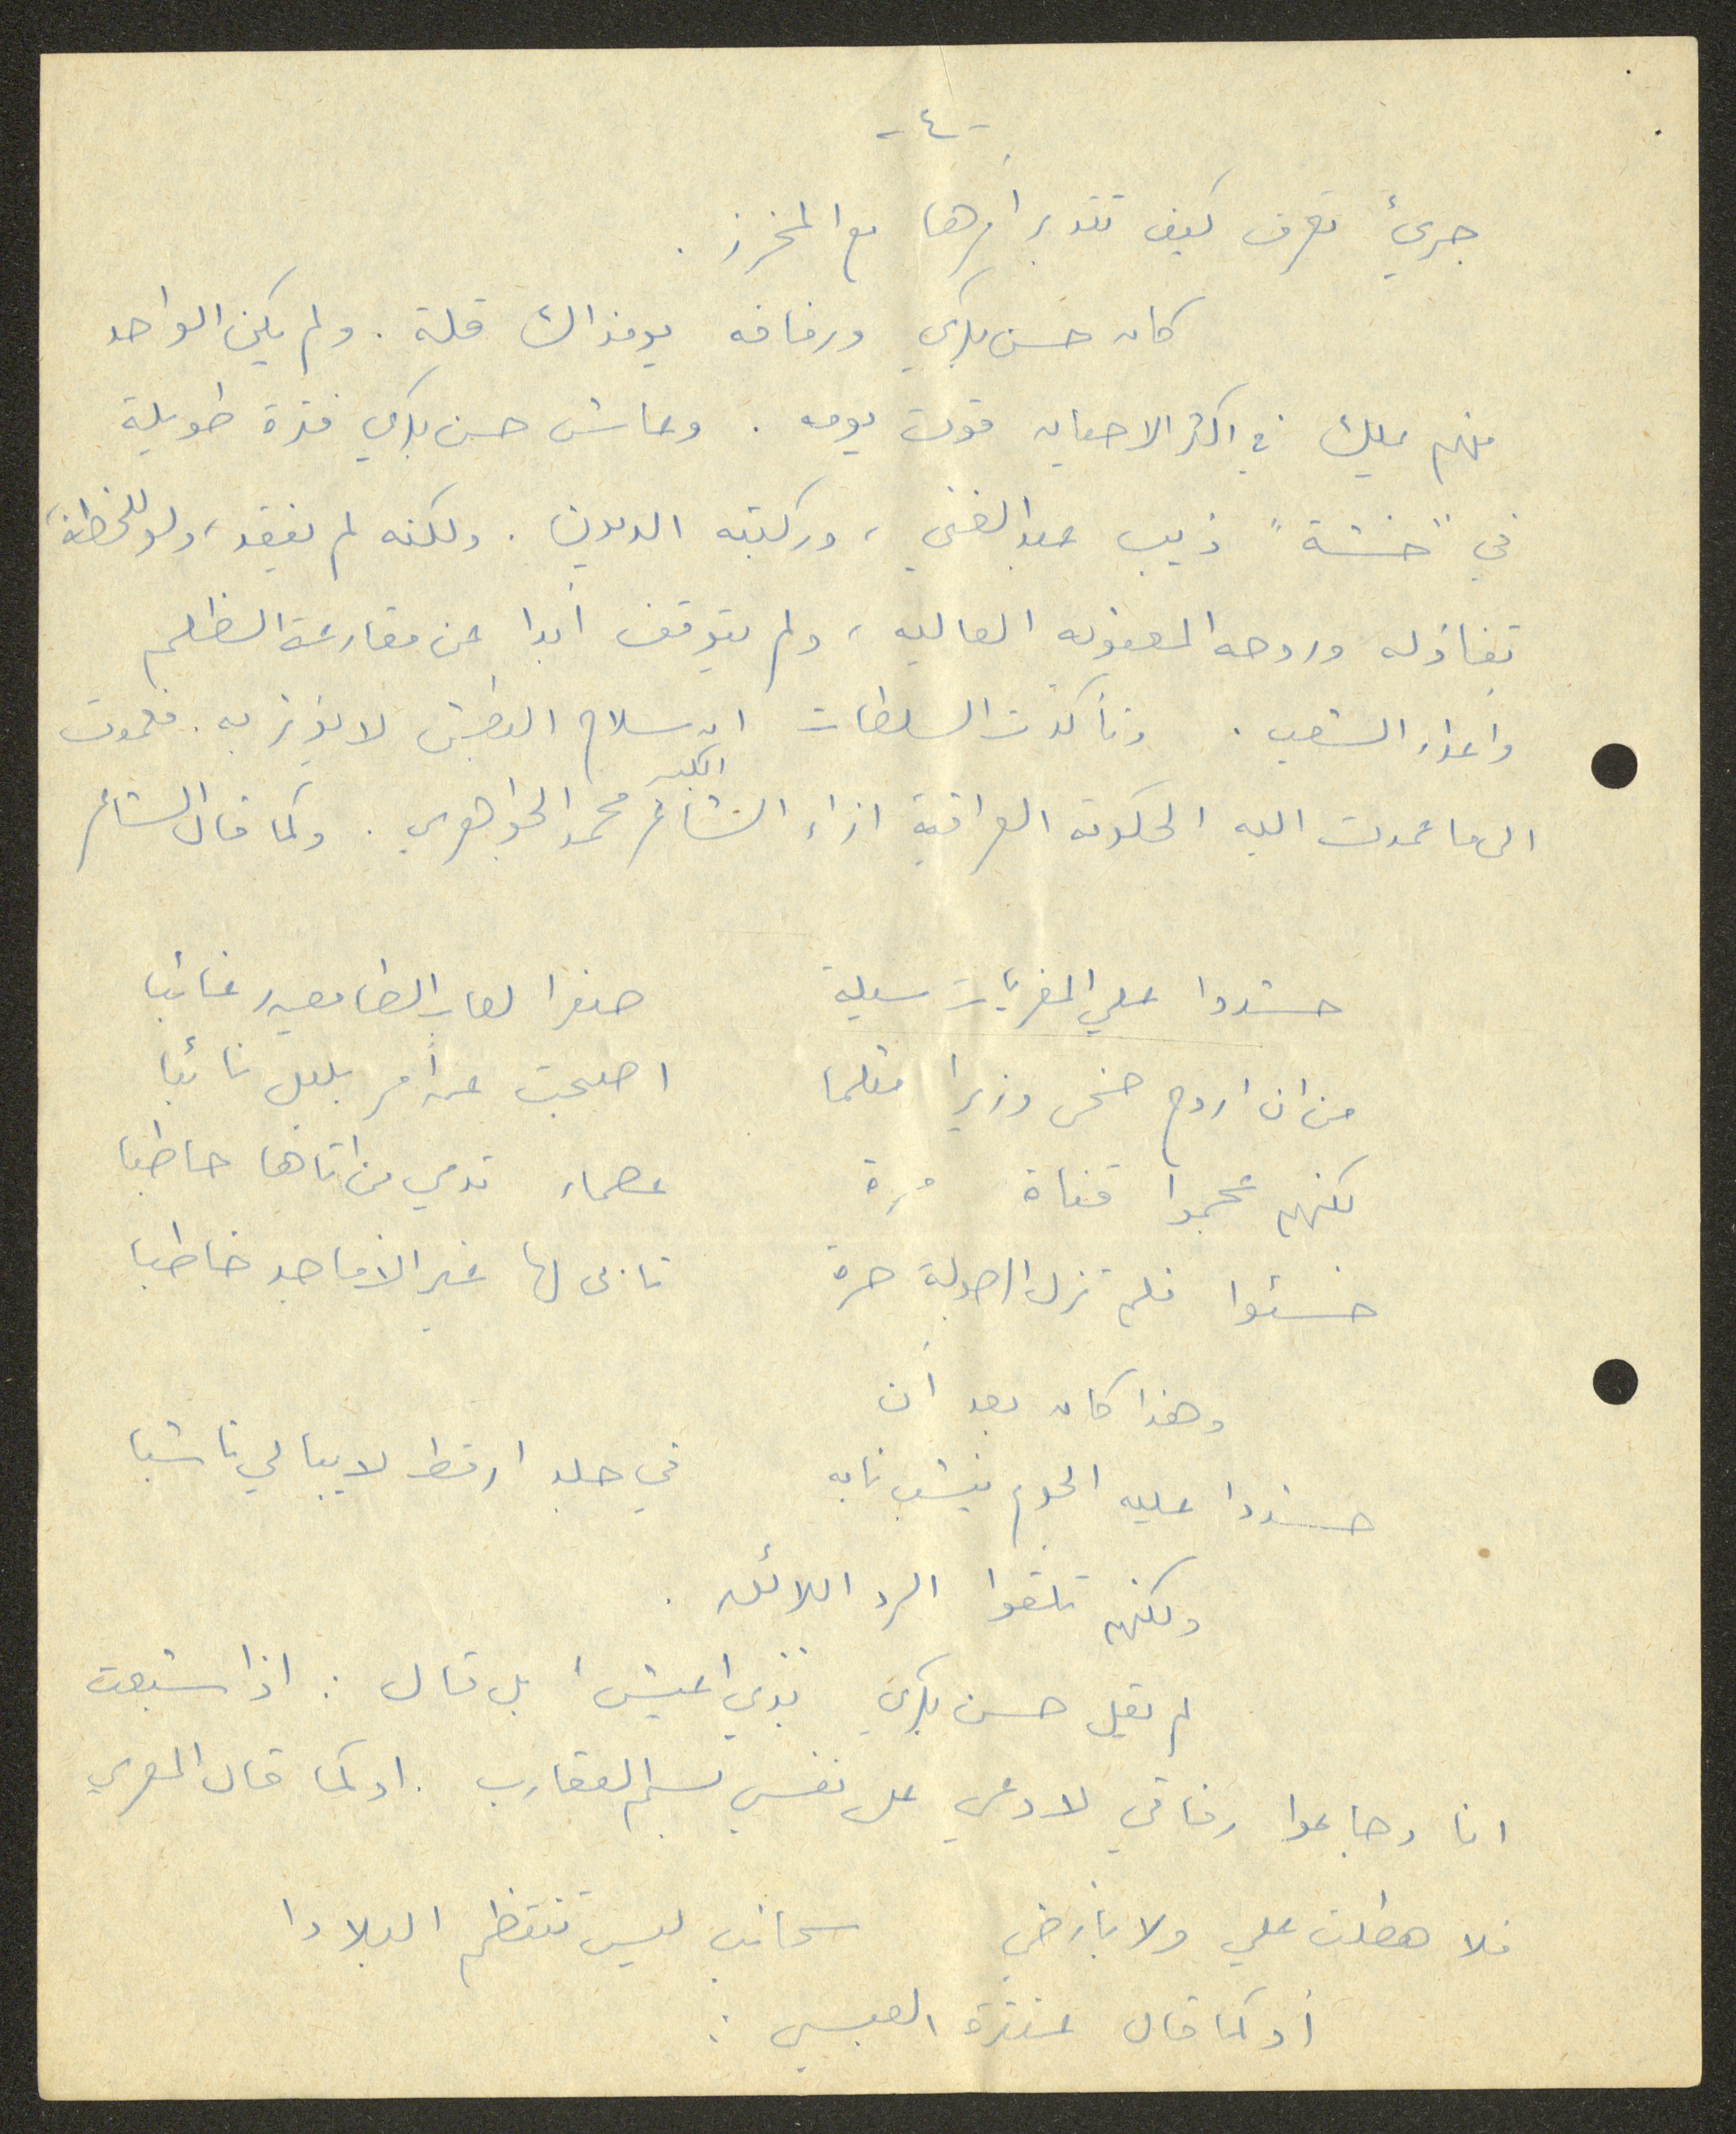 -٤-
جريئ تعرف كيف تتدبر أمرها مع المخرز .
كان حسن بكري ورفاقه يومذاك قلة . ولم يكن الواحد
منهم يملك في اكثر الاحيان قوت يومه . وعاش حسن بكري فترة طويلة
في "خشة" ذيب عبد الغني ، وركبته الديون . ولكنه لم يفقد ، ولو للحظة ،
تفاؤله وروحه المعنويه العاليه ، ولم يتوقف أبدا عن مقارعة الظلم
واعداء الشعب . وتأكدت السلطات ان سلاح البطش لا يؤثر به . فعمدت
الى ما عمدت اليه الحكومه العراقية ازاء الشاعر الكبير محمد الجواهري . وكما قال الشاعر
حشدوا علي المغريات مسيلة صغرا لعاب الطامعين رغائبا
من ان اروح ضحى وزيرا مثلما اصبحت عن أمر بليل نائبا
لكنهم عجموا قناة مُرة عصماء تدمي من اتاها حاطبا
خسئوا فلم تزل الرجولة حرة تابى لها غير الاماجد خاطبا
وهذا كان بعد أن
حشدوا عليه الجوع ينشب نابه في جلد ارقط لا يبالي ناشبا
ولكنهم تلقوا الرد اللائق .
لم يقل حسن بكري "بدي اعيش" بل قال : اذا شبعت
انا وجاعوا رفاقي لادعي على نفسي بسم العقارب . او كما قال المعري
فلا هطلت علي ولا بأرضي سحائب ليس تنتظم البلادا
أو كما قال عنترة العبسي :